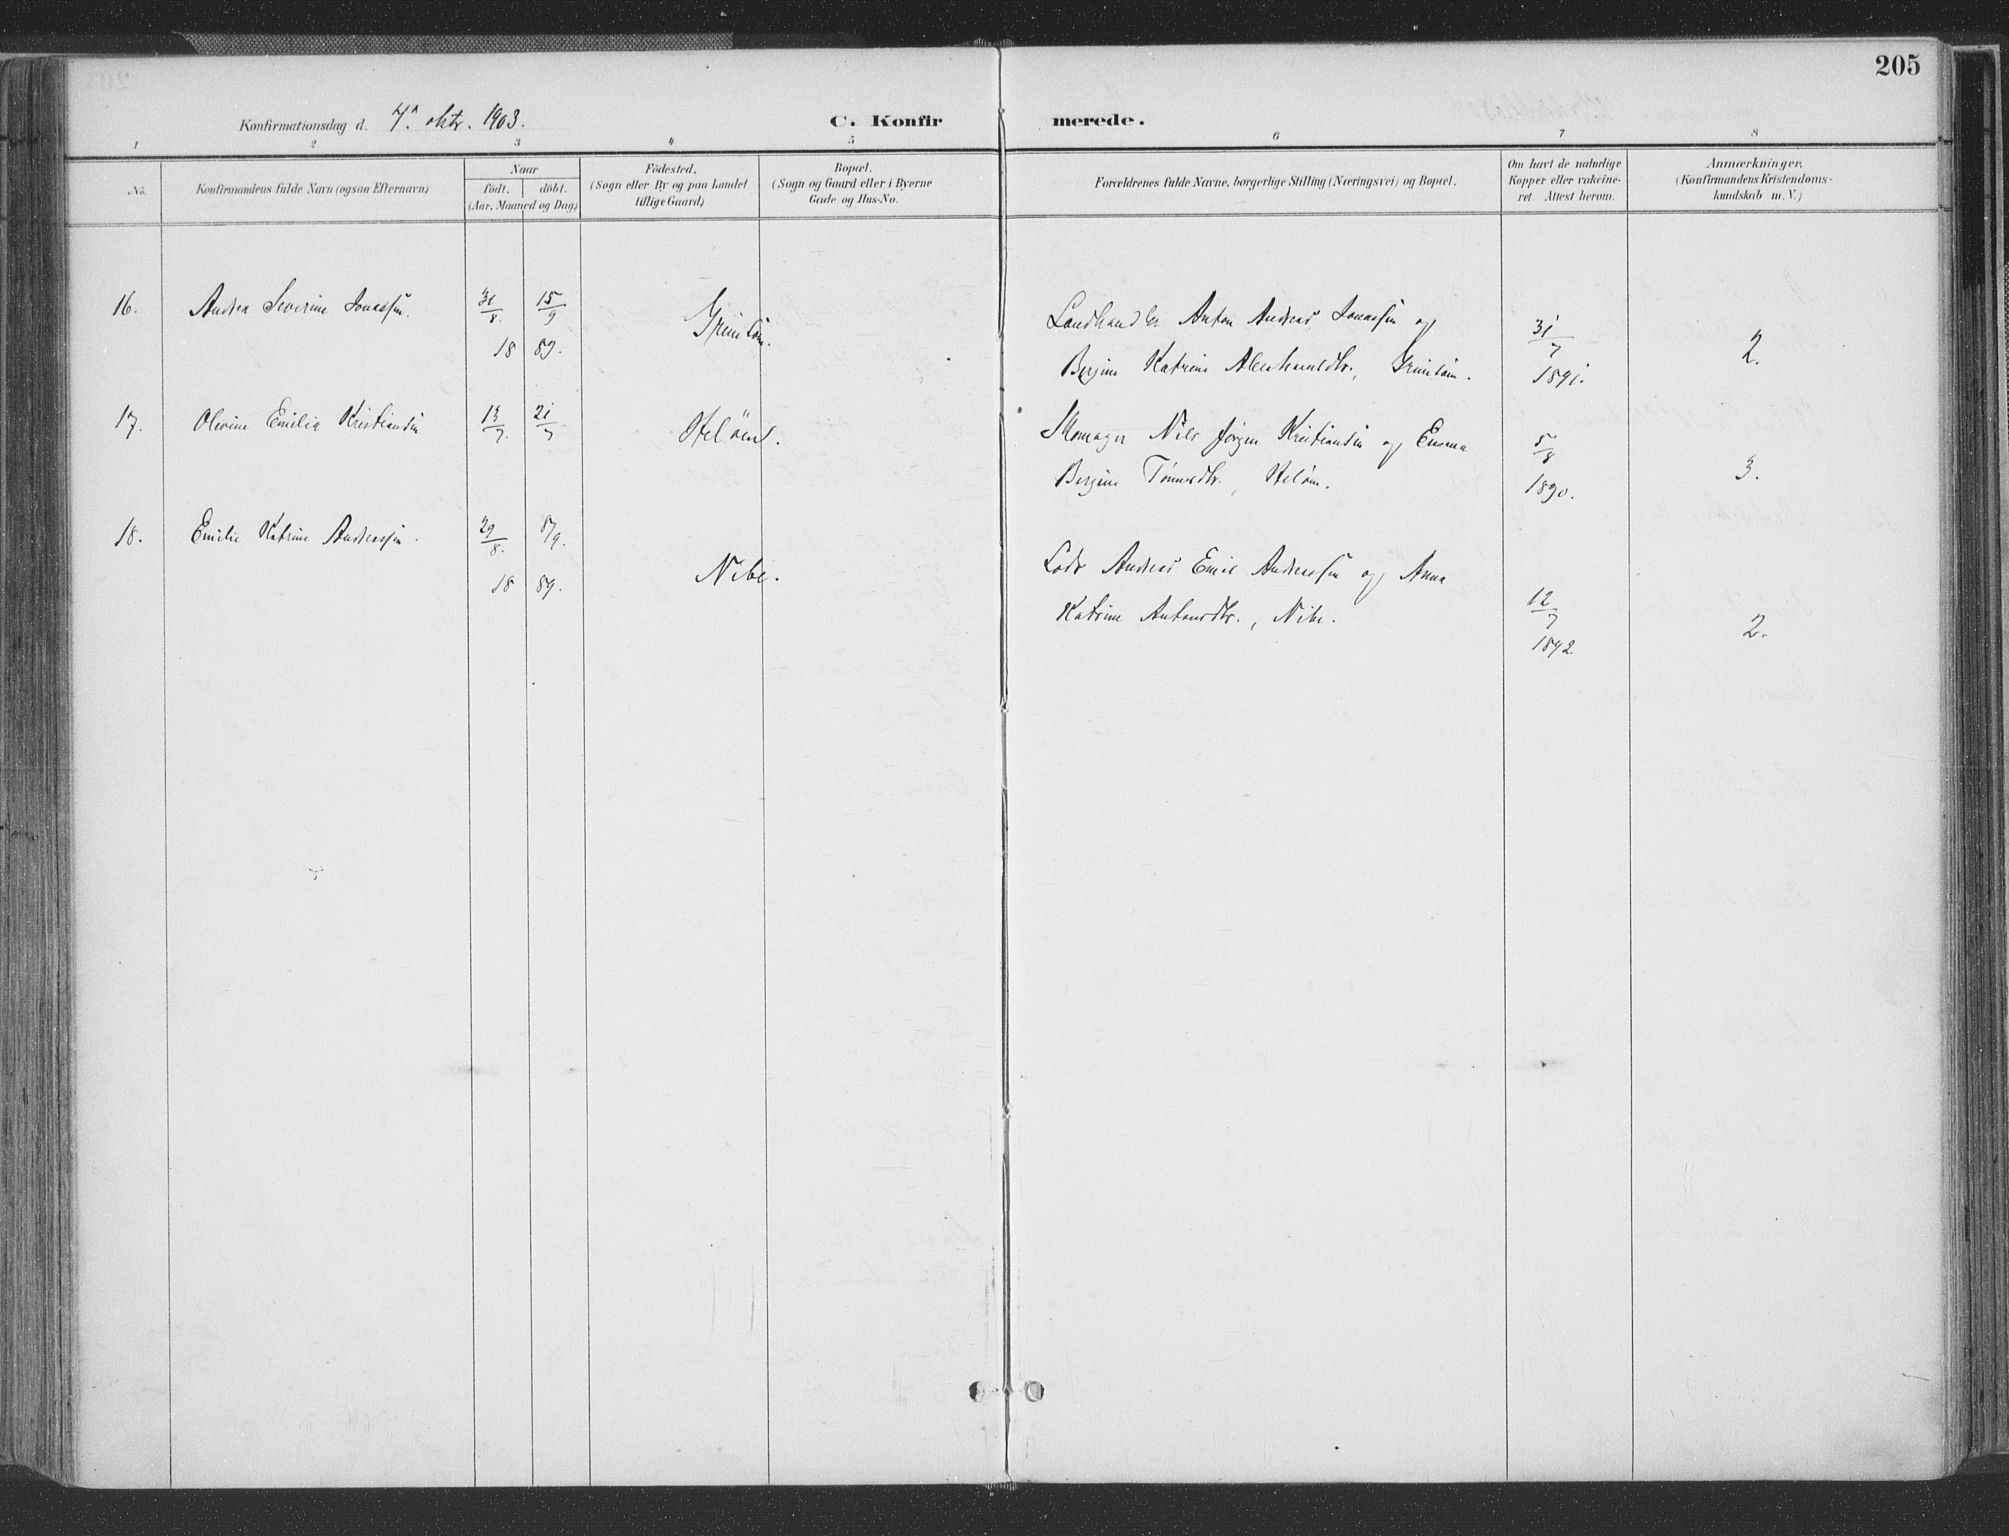 205
Konfirmationsdag d. 4. oktr. 1903.
C. Konfirmerede.
1 2 3 4 5 6 7 8
No.
Konfirmandens fulde Navn (ogsaa Efternavn)
Naar
født. døbt.
(Aar, Maaned og Dag)
Fødested.
(Sogn eller By og paa Landet
tillige Gaard)
Bopæl.
(Sogn og Gaard eller i Byerne
Gade og Hus-No.
Forældrenes fulde Navne, borgerlige Stilling (Næringsvei) og Bopæl.
Om havt de naturlige
Kopper eller vakcine-
ret. Attest herom.
Anmærkninger.
(Konfirmandens Kristendoms-
kundskab m. V.)
16. Andrea Severine Jonassen. 31/8. 15/9
18 89.
Landhandler Anton Andreas Jonassen og
Bergine Katrine Abrahamsdtr.,
31/7
1891.
2.
17. Olevine Emilie Kristiansen 13/7. 21/7 Heløen.
Skomager Nils Jørgen Kristiansen og Emma
Bergine Tønnesdtr., Heløen.
5/8
1890.
3.
18. Emilie Katrine Andreassen. 29/8. 8/9.
18 89. Nibe.
Lods Andreas Emil Andreassen og Anna
Katrine Antonsdtr., Nibe.
12/7
1892.
2.